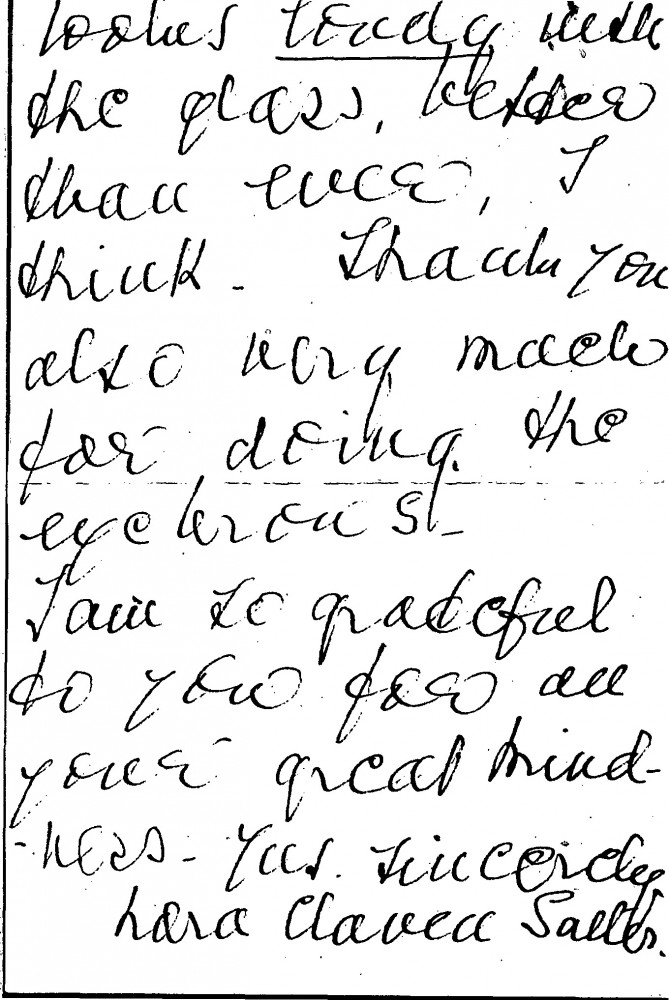 looks lovely with
the glass, better
than ever, I
think - Thank you
also very much
for doing the
eyebrows -
I am so grateful
to you for all
your great kind-
-ness - Yrs. sincerely